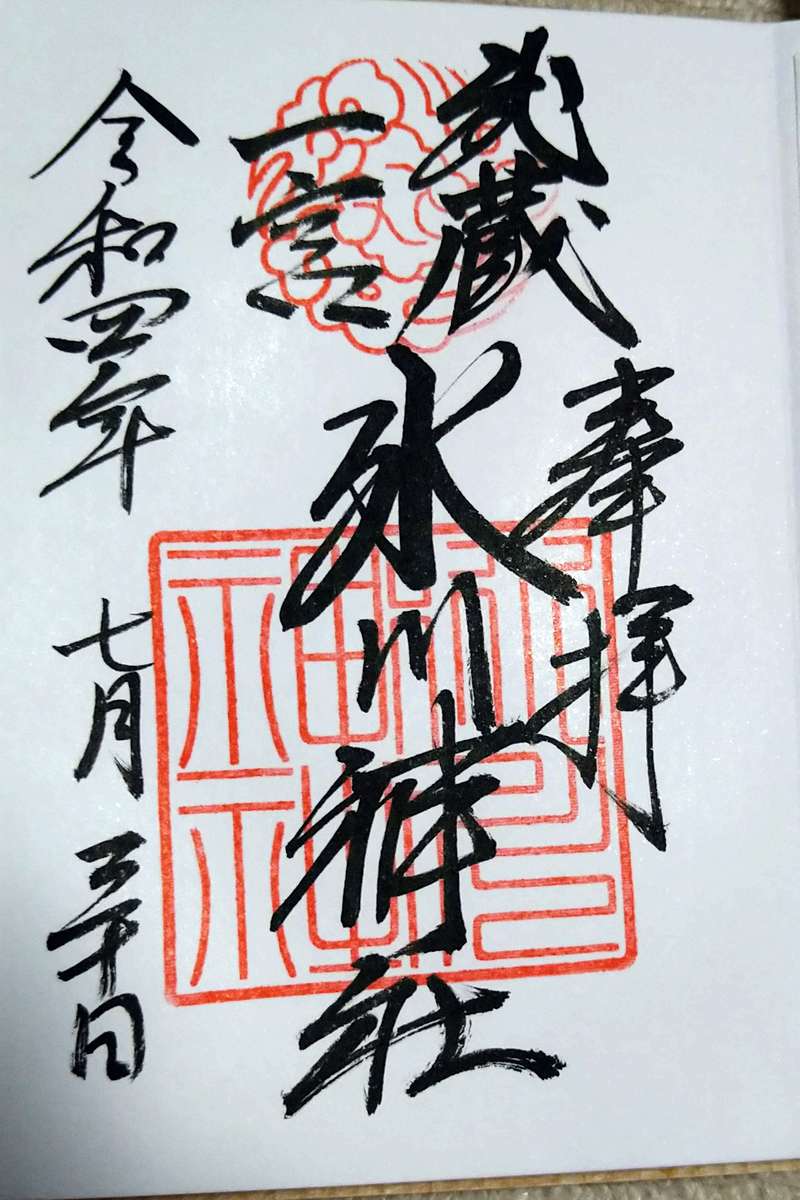 奉拝
武蔵
一宮
氷川神社
令和四年
七月
三十日